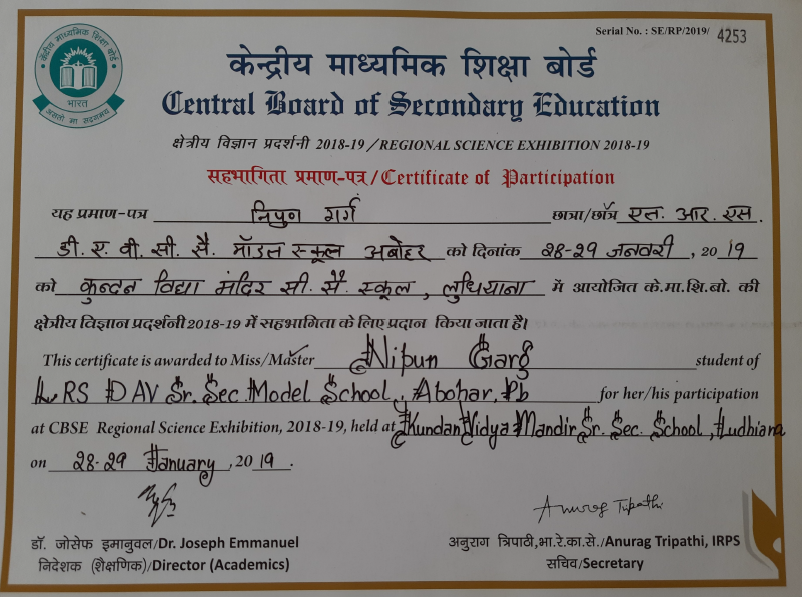 Serial No. : SE/RP/2019/ 4253
केन्द्रीय माध्यमिक शिक्षा बोर्ड
भारत
असतो मा सद्गमय
केन्द्रीय माध्यमिक शिक्षा बोर्ड
Central Board of Secondary Education
क्षेत्रीय विज्ञान प्रदर्शनी 2018-19 / REGIONAL SCIENCE EXHIBITION 2018-19
सहभागिता प्रमाण-पत्र/Certificate of Participation
यह प्रमाण-पत्र निपुण गर्ग छात्रा/छात्र एल. आर. एस.
डी. ए. वी. सी. सै. मॉडल स्कूल अबोहर को दिनांक 28-29 जनवरी, 2019
को कुन्दन विद्या मंदिर सी. सै. स्कूल, लुधियाना में आयोजित के.मा.शि.बो. की
क्षेत्रीय विज्ञान प्रदर्शनी 2018-19 में सहभागिता के लिए प्रदान किया जाता है।
This certificate is awarded to Miss/Master Nipun Garg student of
LRS DAV Sr. Sec. Model School, Abohar, Pb for her/his participation
at CBSE Regional Science Exhibition, 2018-19, held at Kundan Vidya Mandir Sr. Sec. School, Ludhiana
on 28-29 January, 2019.
Anurag Tripathi
डॉ. जोसेफ इमानुवल/Dr. Joseph Emmanuel
निदेशक (शैक्षणिक)/Director (Academics)
अनुराग त्रिपाठी,भा.रे.का.से./Anurag Tripathi, IRPS
सचिव/Secretary